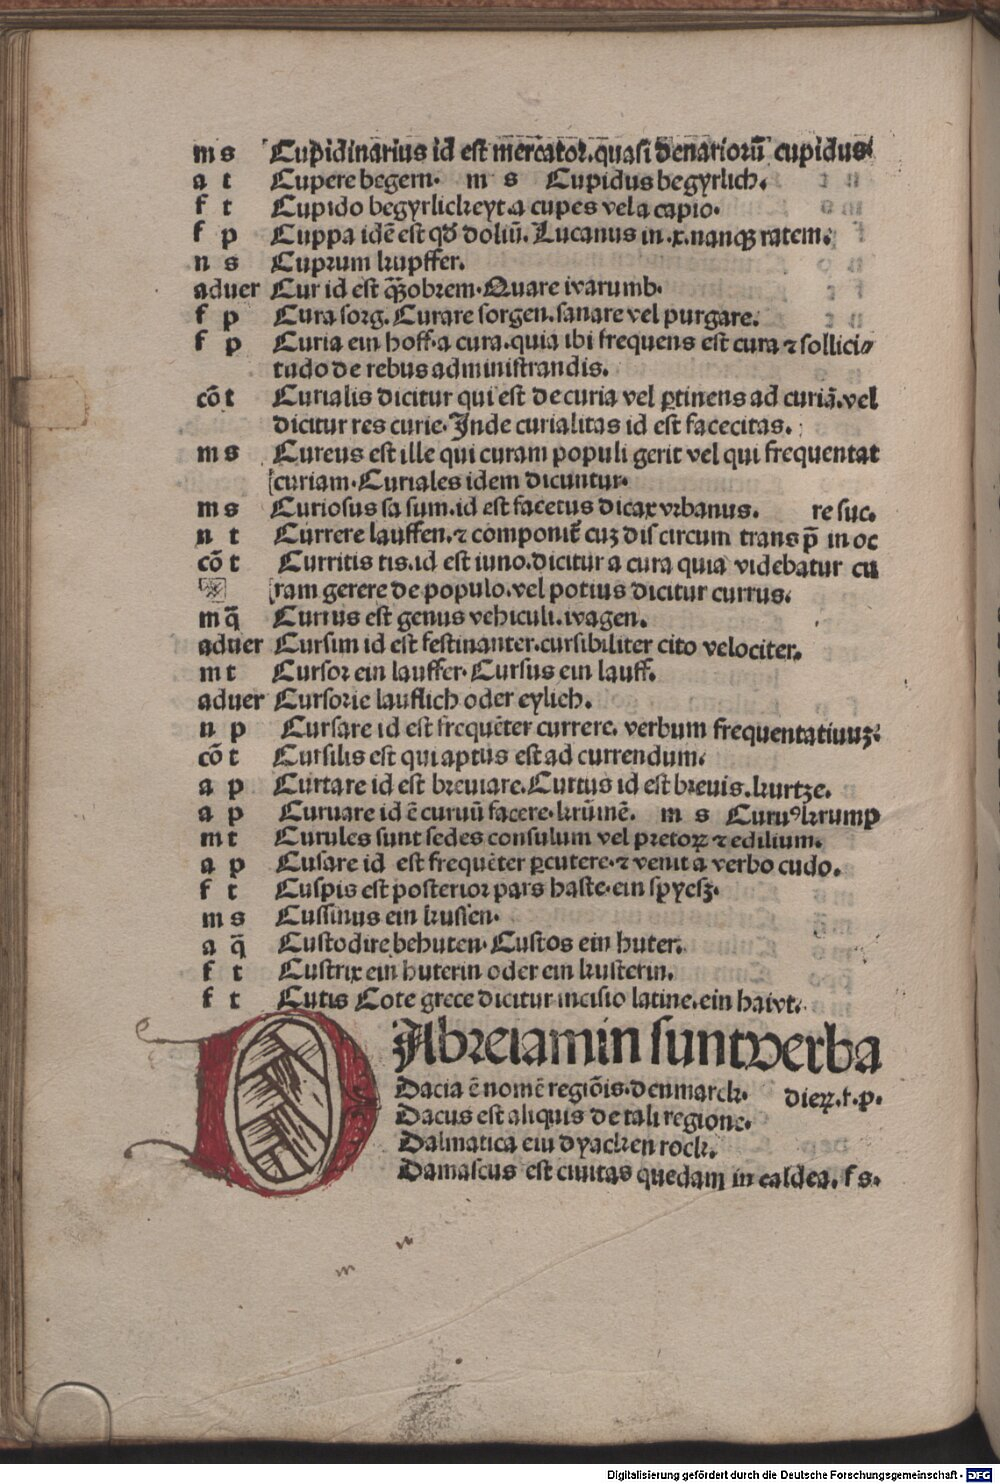 m s Cupidinarius id est mercator. quasi denariorū cupidus.
a t Cupere begern. m s Cupidus begyrlich.
f t Cupido begyrlickeyt. a cupes vel a capio.
f p Cuppa idē est qđ doliū. Lucanus in .x. nanqꝫ ratem.
n s Cuprum kupffer.
aduer Cur id est q̄obrem. Quare warumb.
f p Cura sorg. Curare sorgen. sanare vel purgare.
f p Curia ein hoff. a cura. quia ibi frequens est cura ⁊ sollici⸗
tudo de rebus administrandis.
cō t Curialis dicitur qui est de curia vel ꝑtinens ad curiā. vel
dicitur res curie. Inde curialitas id est facecitas.
m s Cureus est ille qui curam populi gerit vel qui frequentat
curiam. Curiales idem dicuntur.
m s Curiosus sa sum. id est facetus dicax vrbanus. re suc.
n t Currere lauffen. ⁊ componit̄ cuꝫ dis circum trans p̄ in oc
cō t Curritis tis. id est iuno. dicitur a cura quia videbatur cu
ram gerere de populo. vel potius dicitur currus.
m q̄ Currus est genus vehiculi. wagen.
aduer Cursim id est festinanter. cursibiliter cito velociter.
m t Cursor ein lauffer. Cursus ein lauff.
aduer Cursorie lauflich oder eylich.
n p Cursare id est frequēter currere. verbum frequentatiuuꝫ.
cō t Cursilis est qui aptus est ad currendum.
a p Curtare id est breuiare. Curtus id est brevis. kurtze.
a p Curuare id ē curuū facere. krūmē. m s Curuꝰ krump
m t Curules sunt sedes consulum vel pretoꝝ ⁊ edilium.
a p Cusare id est frequēter ꝑcutere. ⁊ venit a verbo cudo.
f t Cuspis est posterior pars haste. ein spyesꝫ.
m s Cussinus ein kussen.
a q̄ Custodire behuten. Custos ein huter.
f t Custrix ein huterin oder ein kusterin.
f t Cutis Cote grece dicitur incisio latine. ein hawt.
DAbreiamin sunt verba
Dacia ē nomē regiōis. denmarck. dieꝝ. f. p.
Dacus est aliquis de tali regione.
Dalmatica ein dyacken rock.
Damascus est ciuitas quedam in caldea. f s.
Digitalisierung gefördert durch die Deutsche Forschungsgemeinschaft - DFG